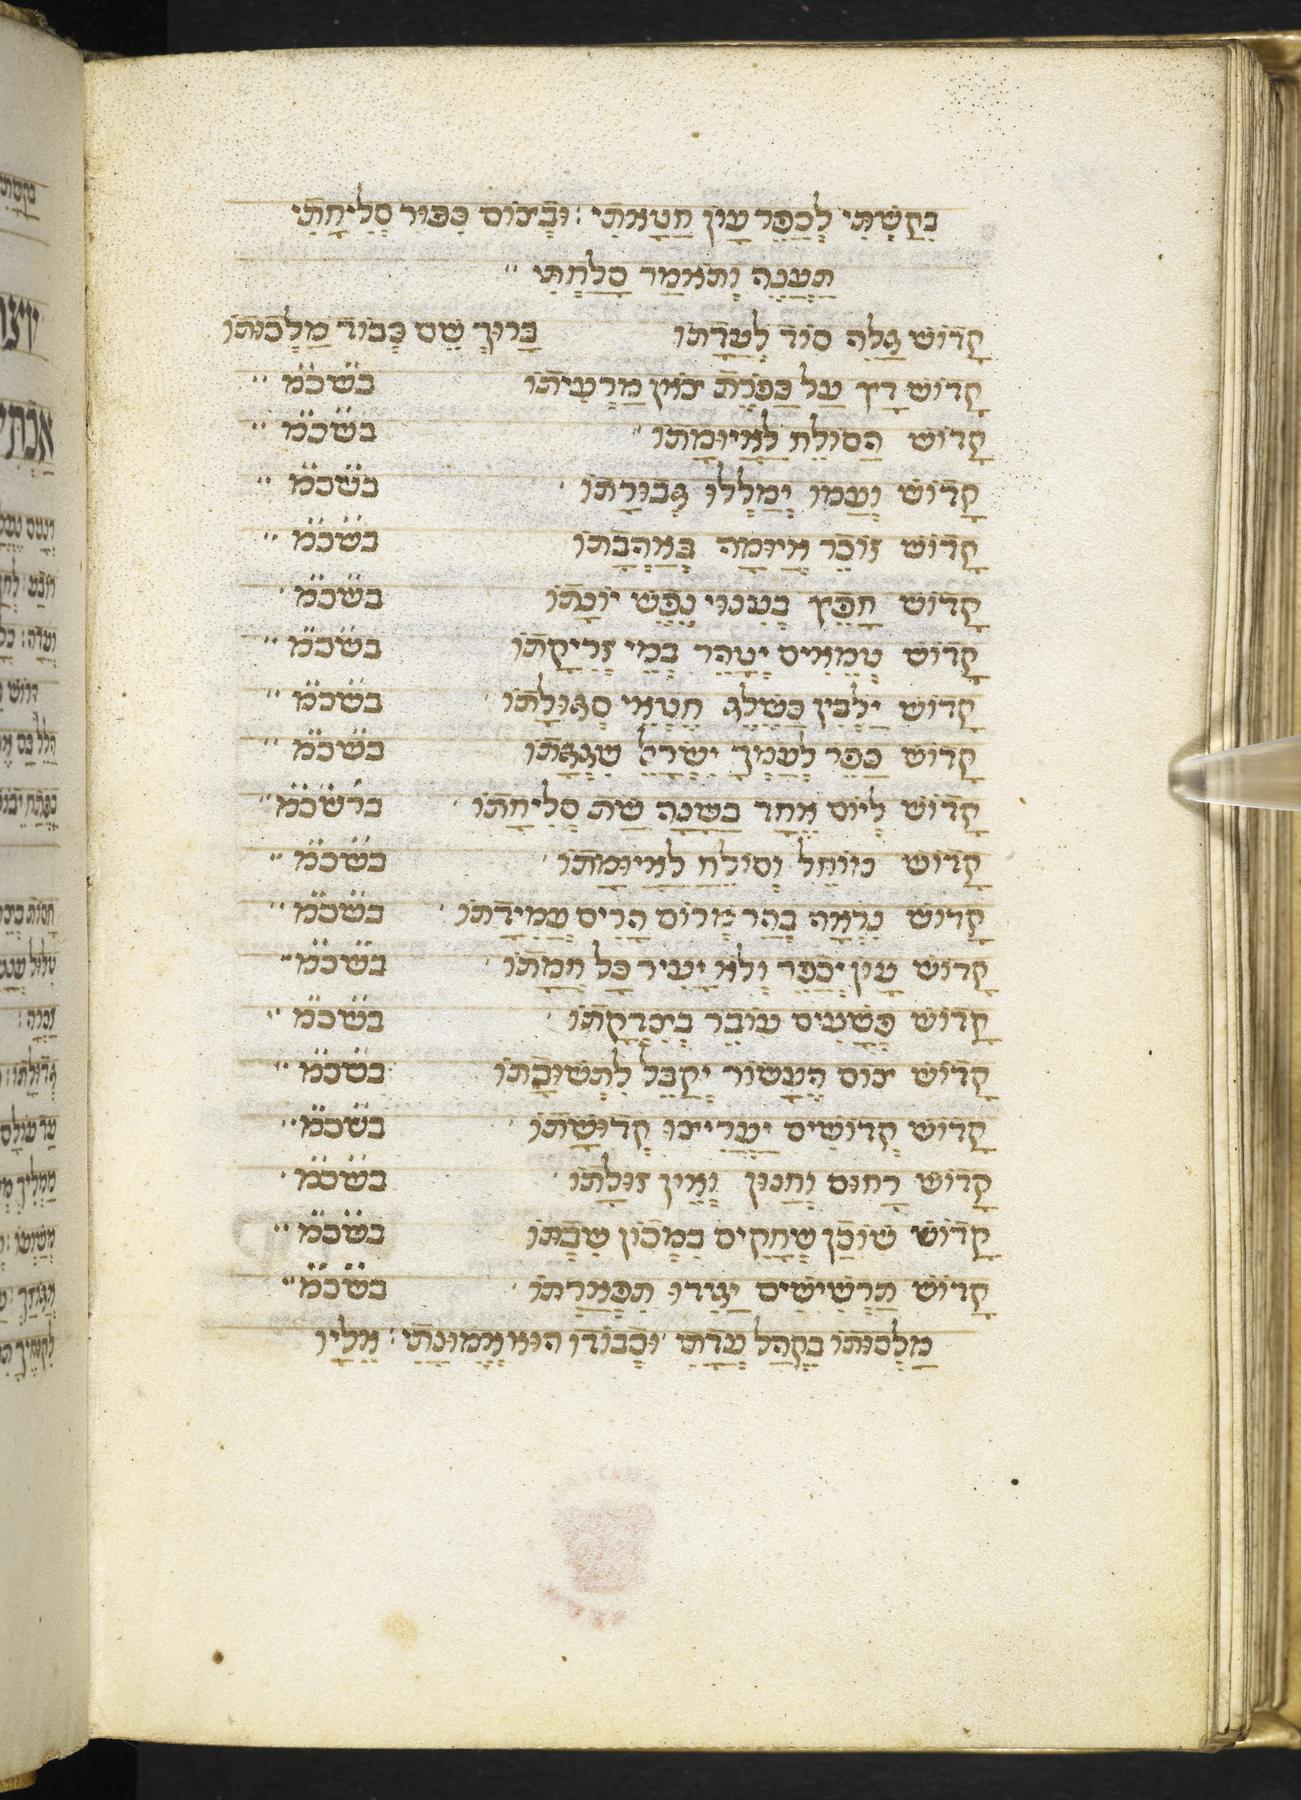 בִּקַּשְׁתִּי לְכַפֵּר עָוֹן חַטָּאתִי : וּבְיוֹם כִּפּוּר סְלִיחָתִי
תַּעֲנֶה וְתֹאמַר סָלַחְתִּי ״
קָדוֹשׁ גִּלָּה סוֹד לְעֲדָתוֹ בָּרוּךְ שֵׁם כְּבוֹד מַלְכוּתוֹ
קָדוֹשׁ דָּץ עַל כַּפֹּרֶת יוֹם מַרְעִיתוֹ בשכמ ״
קָדוֹשׁ הַסּוֹלֵחַ לַאֲיוּמָתוֹ ״ בשכמ ״
קָדוֹשׁ וְעַמּוֹ יְמַלְלוּ גְּבוּרָתוֹ בשכמ ״
קָדוֹשׁ זוֹכֵר אֲיוּמָה בְּאַהֲבָתוֹ בשכמ ״
קָדוֹשׁ חָפֵץ בְּעִנּוּי נֶפֶשׁ יוֹנָתוֹ בשכמ
קָדוֹשׁ טְמֵאִים יְטַהֵר בְּמֵי זְרִיקָתוֹ בשכמ ״
קָדוֹשׁ יַלְבִּין כַּשֶּׁלֶג חֲטָאֵי סְגוּלָּתוֹ בשכמ ״
קָדוֹשׁ כַּפֵּר לְעַמְּךָ יִשְׂרָאֵל שִׁגְגָתוֹ בשכמ ״
קָדוֹשׁ לְיוֹם אֶחָד בַּשָּׁנָה שַׁת סְלִיחָתוֹ ברשכמ ״
קָדוֹשׁ מוֹחֵל וְסוֹלֵחַ לַאֲיוּמָתוֹ בשכמ ״
קָדוֹשׁ נִרְאָה בְּהַר מְרוֹם הָרִים עֲמִידָתוֹ בשכמ ״
קָדוֹשׁ עָוֹן יְכַפֵּר וְלֹא יָעִיר כָּל חֲמָתוֹ בשכמ ״
קָדוֹשׁ פְּשָׁעִים עוֹבֵר בְּצִדְקָתוֹ בשכמ ״
קָדוֹשׁ יוֹם הֶעָשׂוֹר יְקַבֵּל לִתְשׁוּבָתוֹ בשכמ ״
קָדוֹשׁ קְדוֹשִׁים יַעֲרִיצוּ קְדוּשָּׁתוֹ בשכמ ״
קָדוֹשׁ רַחוּם וְחַנּוּן וְאֵין זוּלָתוֹ בשכמ
קָדוֹשׁ שׁוֹכֵן שְׁחָקִים בִּמְכוֹן שִׁבְתּוֹ בשכמ ״
קָדוֹשׁ תַּרְשִׁישִׁים יַגִּידוּ תִּפְאַרְתּוֹ בשכמ ״
מַלְכוּתוֹ בִּקְהַל עֲדָתִי וּכְבוֹדוֹ הוּא אֱמוּנָתִי : אֵלָיו